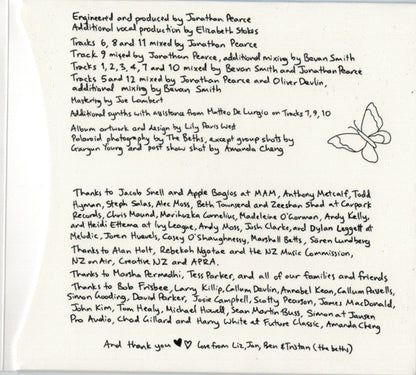 Engineered and produced by Jonathan Pearce
Additional vocal production by Elizabeth Stokes
Tracks 6, 8 and 11 mixed by Jonathan Pearce
Track 9 mixed by Jonathan Pearce, additional mixing by Bevan Smith
Tracks 1, 2, 3, 4, 7 and 10 mixed by Bevan Smith and Jonathan Pearce
Tracks 5 and 12 mixed by Jonathan Pearce and Oliver Devlin,
additional mixing by Bevan Smith
Mastering by Joe Lambert
Additional synths with assistance from Matteo De Lurgio on Tracks 7, 9, 10
Album artwork and design by Lily Paris West
Polaroid photography by The Beths, except group shots by
Garyun Young and post show shot by Amanda Cheng
Thanks to Jacob Snell and Apple Bagios at MAM, Anthony Metcalf, Todd
Hyman, Steph Salas, Alec Moss, Beth Townsend and Zeeshan Shad at Carpark
Records, Chris Mound, Marihuzka Cornelius, Madeleine O'Gorman, Andy Kelly,
and Heidi Ettema at Ivy League, Andy Moss, Josh Clarke, and Dylan Leggett at
Melodic, Joren Huevels, Casey O'Shaughnessy, Marshall Betts, Sören Lundberg
Thanks to Alan Holt, Rebekah Ngatae and the NZ Music Commission,
NZ on Air, Creative NZ and APRA.
Thanks to Marsha Permadhi, Tess Porker, and all of our families and friends
Thanks to Bob Frisbee, Larry Killip, Callum Devlin, Annabel Kean, Callum Passells,
Simon Gooding, David Parker, Josie Campbell, Scotty Pearson, James MacDonald,
John Kim, Tom Healy, Michael Howell, Sean Martin-Buss, Simon at Jansen
Pro Audio, Chad Gillard and Harry White at Future Classic, Amanda Cheng
And thank you ♥♡ love from Liz, Jon, Ben & Tristan (the beths)